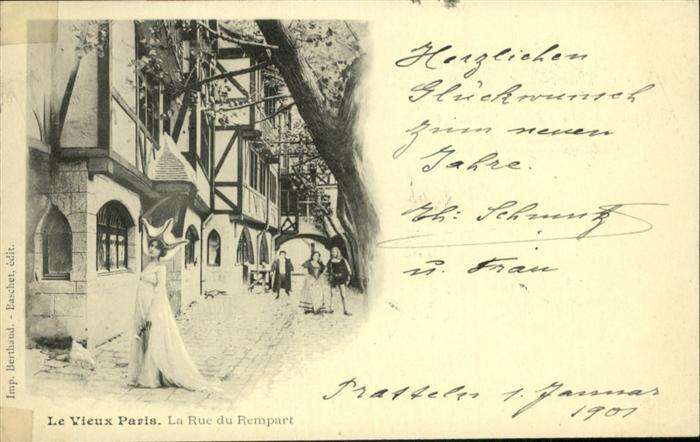 Herzlichen
Glückwunsch
zum neuen
Jahre.
Th: Schmutz
u. Frau
Pratteln 1. Januar
1901
Imp. Berthaud. - Easchet, édit.
Le Vieux Paris. La Rue du Rempart